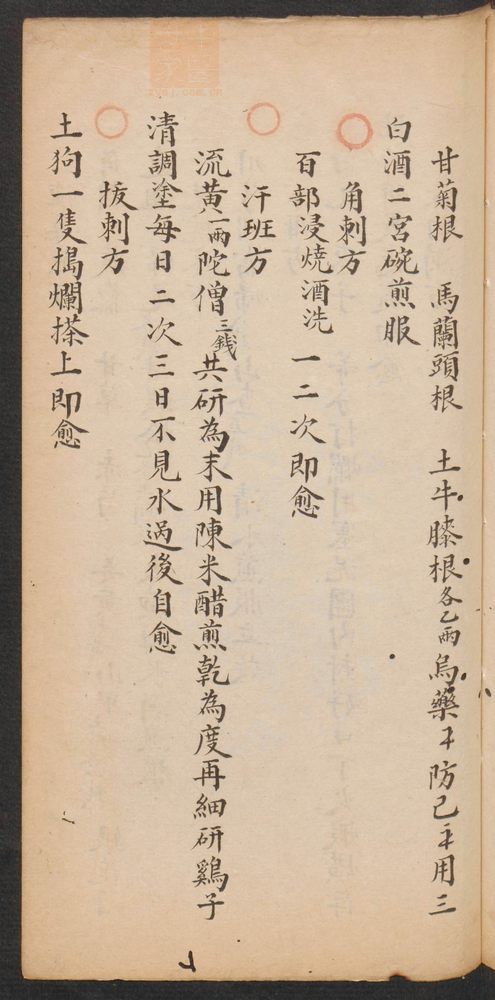 甘菊根 馬蘭頭根 土牛膝根各乙兩烏藥 防己 用三
白酒二宮碗煎服
角刺方
百部浸燒酒洗 一二次即愈
汗班方
流黃一兩陀僧三錢共研為末用陳米醋煎乾為度再細研鷄子
清調塗每日二次三日不見水過後自愈
拔刺方
土狗一隻搗爛搽上即愈